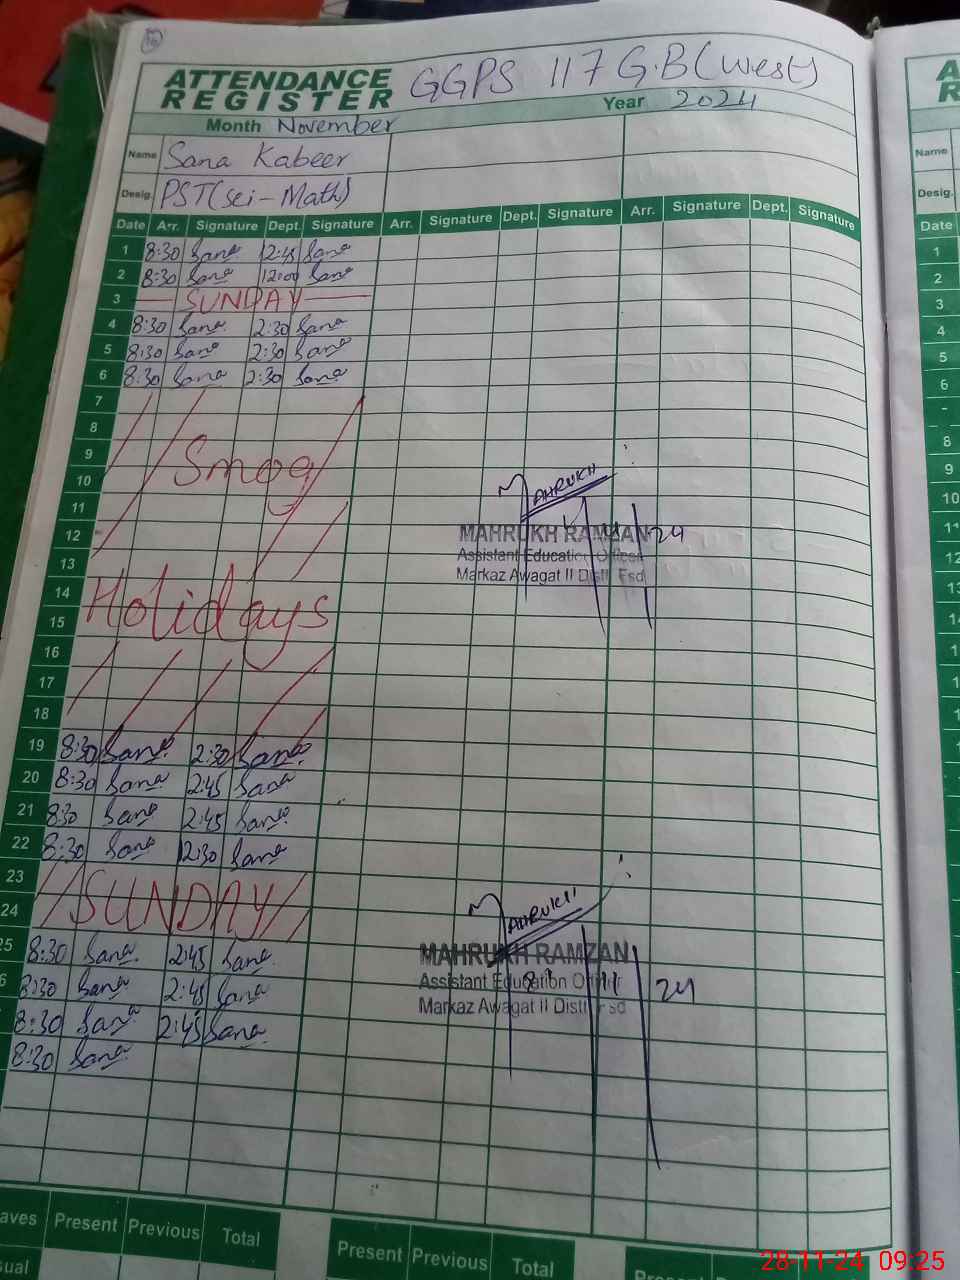 10
ATTENDANCE REGISTER GGPS 117 G.B (West)
Month November Year 2024
Name Sana Kabeer
Desig. PST (Sci-Math)
Date Arr. Signature Dept. Signature Arr. Signature Dept. Signature Arr. Signature Dept. Signature
1 8:30 Sana 2:45 Sana
2 8:30 Sana 12:00 Sana
3 SUNDAY
4 8:30 Sana 2:30 Sana
5 8:30 Sana 2:30 Sana
6 8:30 Sana 2:30 Sana
7
8
9
10
Smog
11
12
13
14
15
Holidays
16
17
18
19 8:30 Sana 2:30 Sana
20 8:30 Sana 2:45 Sana
21 8:30 Sana 2:45 Sana
22 8:30 Sana 12:30 Sana
23
24 SUNDAY
5 8:30 Sana 2:45 Sana
6 8:30 Sana 2:45 Sana
8:30 Sana 2:45 Sana
8:30 Sana
MAHRUKH
24
MAHRUKH RAMZAN
Assistant Education Officer
Markaz Awagat II Distt Fsd
MAHRUKH
11 24
MAHRUKH RAMZAN
Assistant Education Officer
Markaz Awagat II Distt Fsd
aves Present Previous Total Present Previous Total Present Previous
sual
A
R
Name
Desig.
Date
1
2
3
4
5
6
8
9
10
11
12
13
28-11-24 09:25